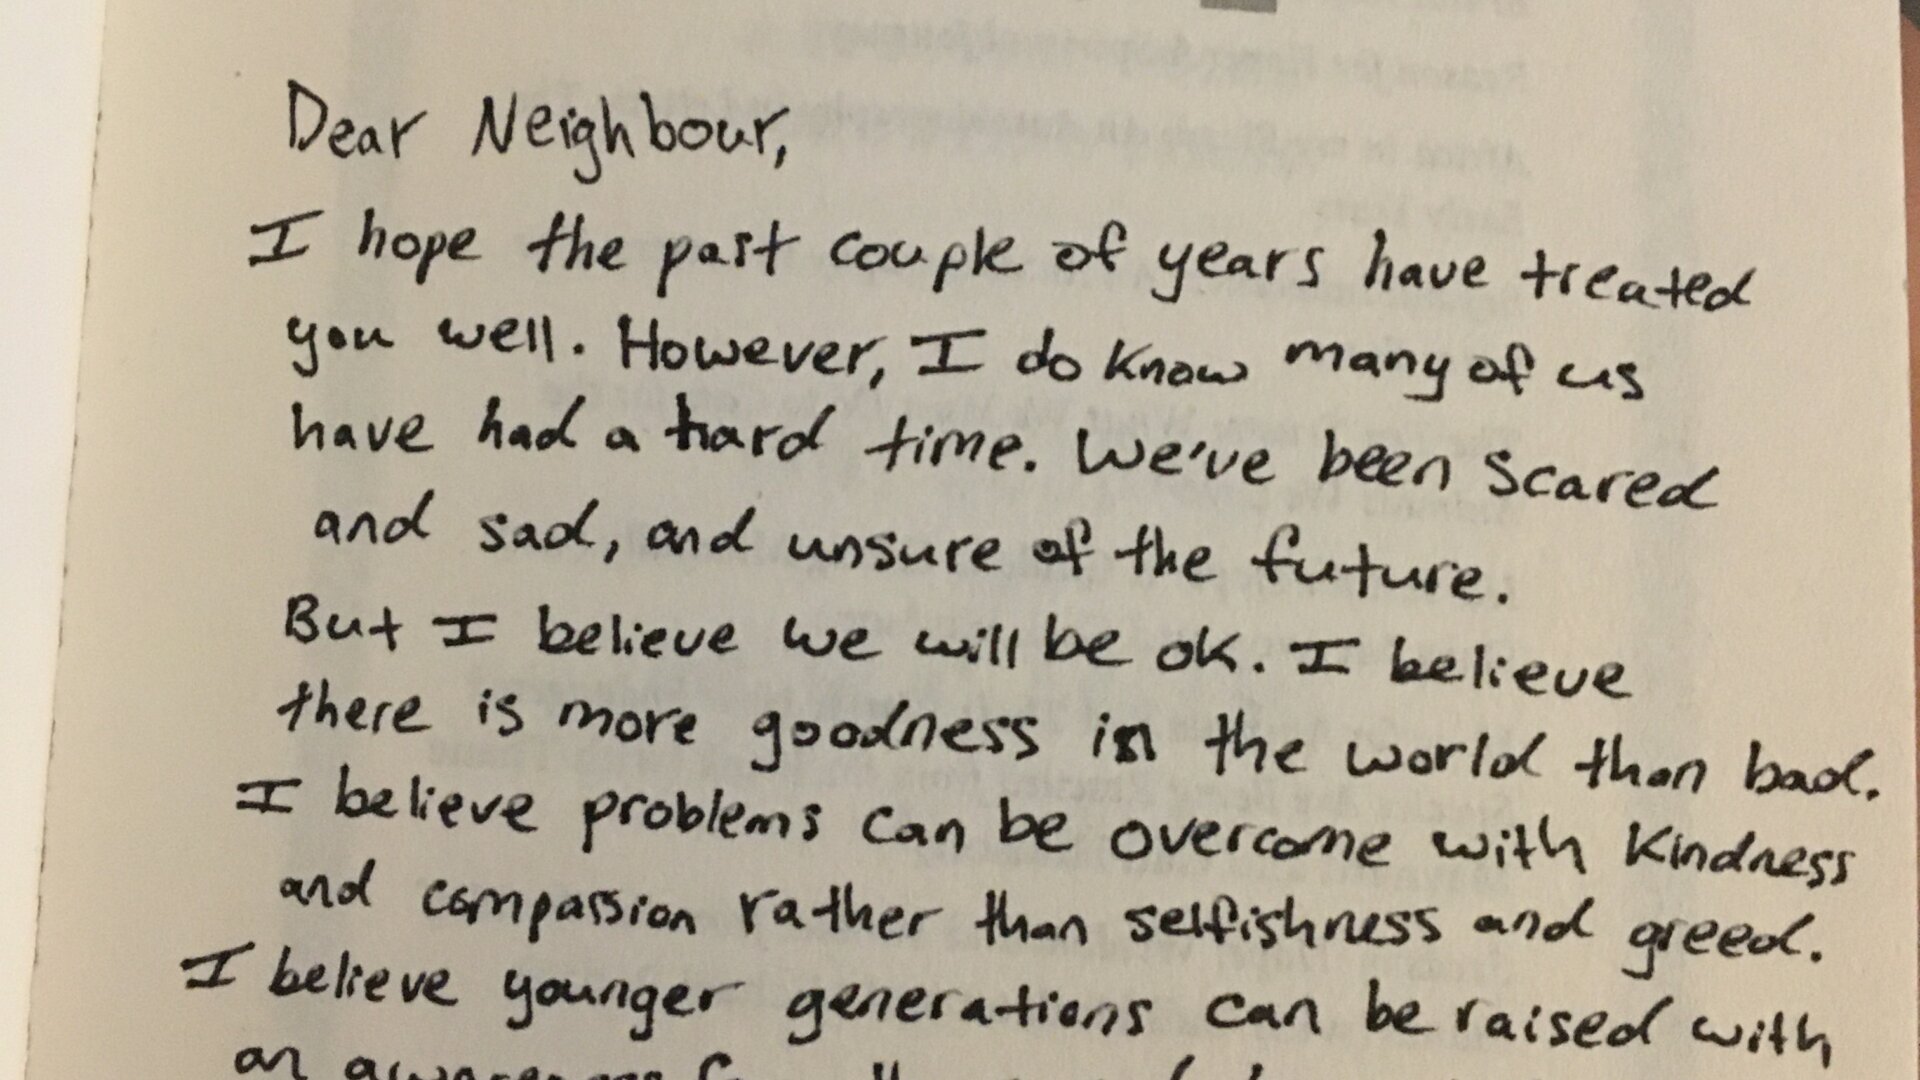 Dear Neighbour,
I hope the past couple of years have treated
you well. However, I do know many of us
have had a hard time. We've been scared
and sad, and unsure of the future.
But I believe we will be ok. I believe
there is more goodness in the world than bad.
I believe problems can be overcome with kindness
and compassion rather than selfishness and greed.
I believe younger generations can be raised with
an awareness